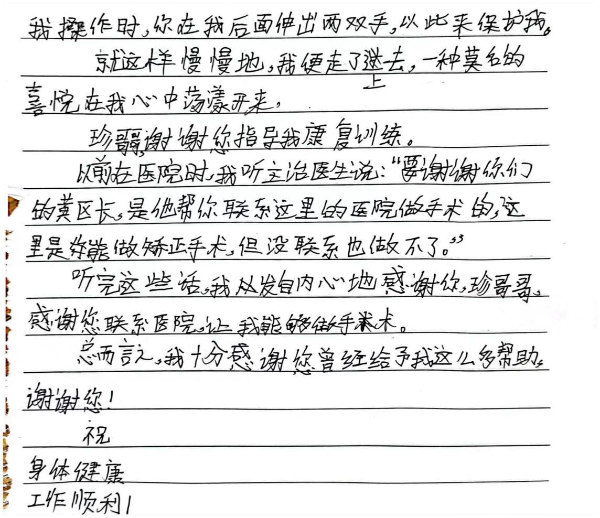 我操作时,你在我后面伸出两双手,以此来保护我。
就这样慢慢地,我便走了上去,一种莫名的
喜悦在我心中荡漾开来。
珍哥,谢谢您指导我康复训练。
以前在医院时,我听主治医生说:“要谢谢你们
的黄区长,是他帮你联系这里的医院做手术的,这
里是能做矫正手术,但没联系也做不了。”
听完这些话,我从发自内心地感谢你,珍哥哥,
感谢您联系医院,让我能够做手术。
总而言之,我十分感谢您曾经给予我这么多帮助。
谢谢您!
祝
身体健康
工作顺利!